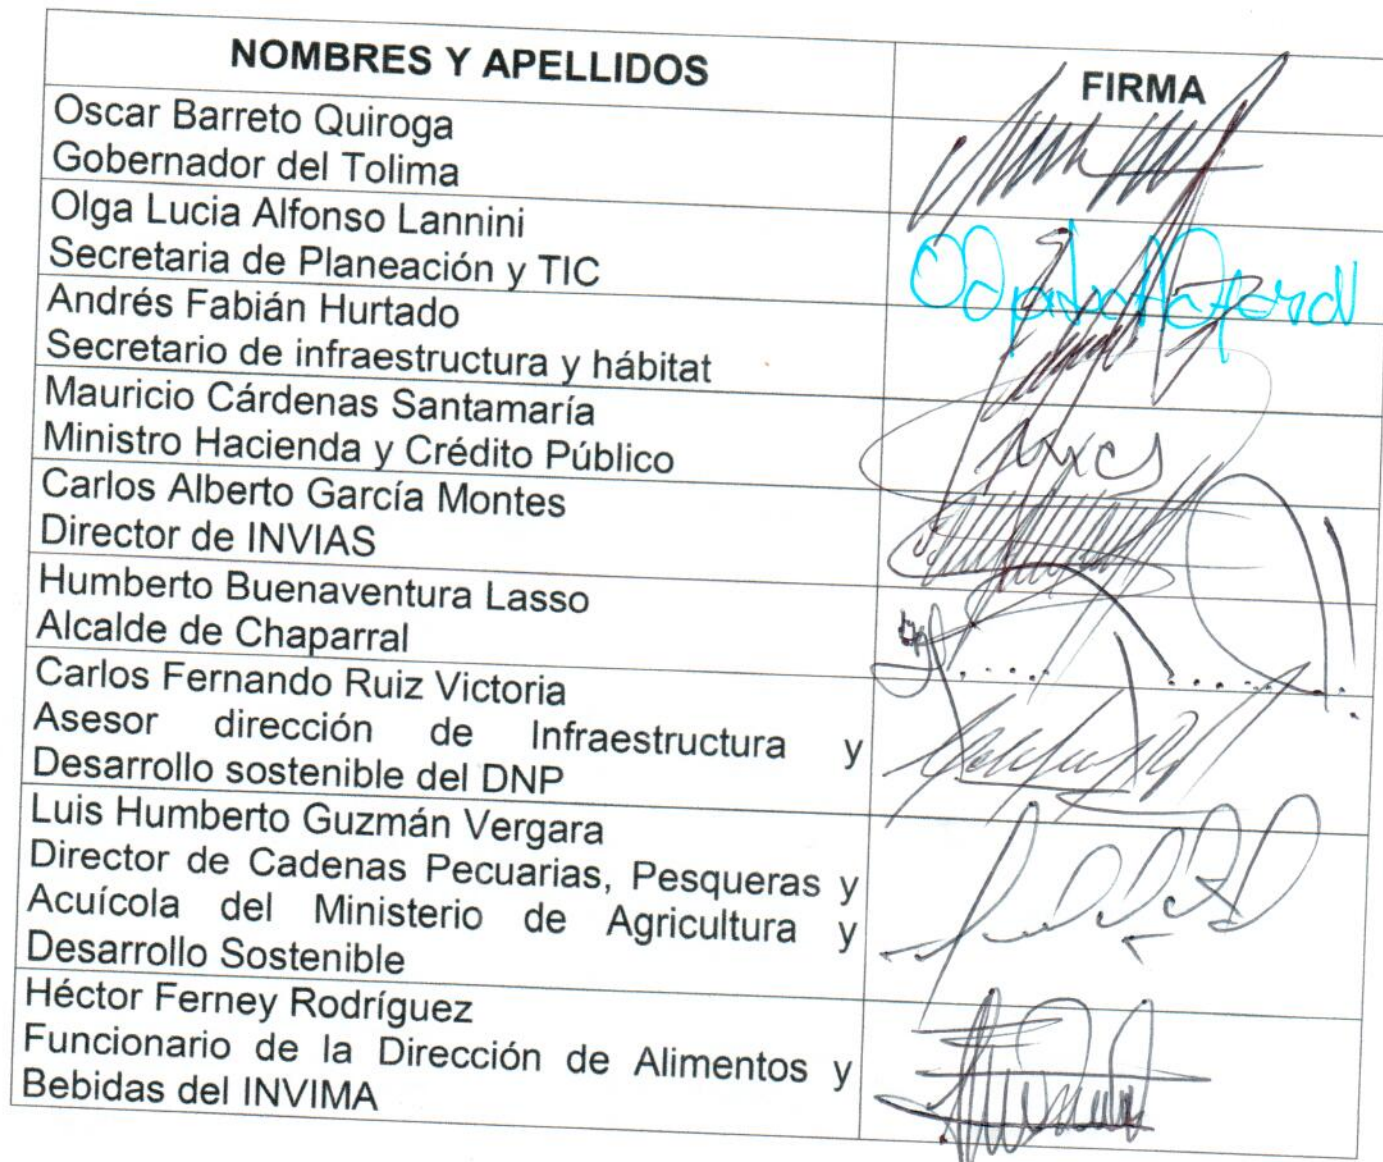 NOMBRES Y APELLIDOS FIRMA
Oscar Barreto Quiroga
Gobernador del Tolima
Olga Lucia Alfonso Lannini
Secretaria de Planeación y TIC
Andrés Fabián Hurtado
Secretario de infraestructura y hábitat
Mauricio Cárdenas Santamaría
Ministro Hacienda y Crédito Público
Carlos Alberto García Montes
Director de INVIAS
Humberto Buenaventura Lasso
Alcalde de Chaparral
Carlos Fernando Ruiz Victoria
Asesor dirección de Infraestructura y
Desarrollo sostenible del DNP
Luis Humberto Guzmán Vergara
Director de Cadenas Pecuarias, Pesqueras y
Acuícola del Ministerio de Agricultura y
Desarrollo Sostenible
Héctor Ferney Rodríguez
Funcionario de la Dirección de Alimentos y
Bebidas del INVIMA